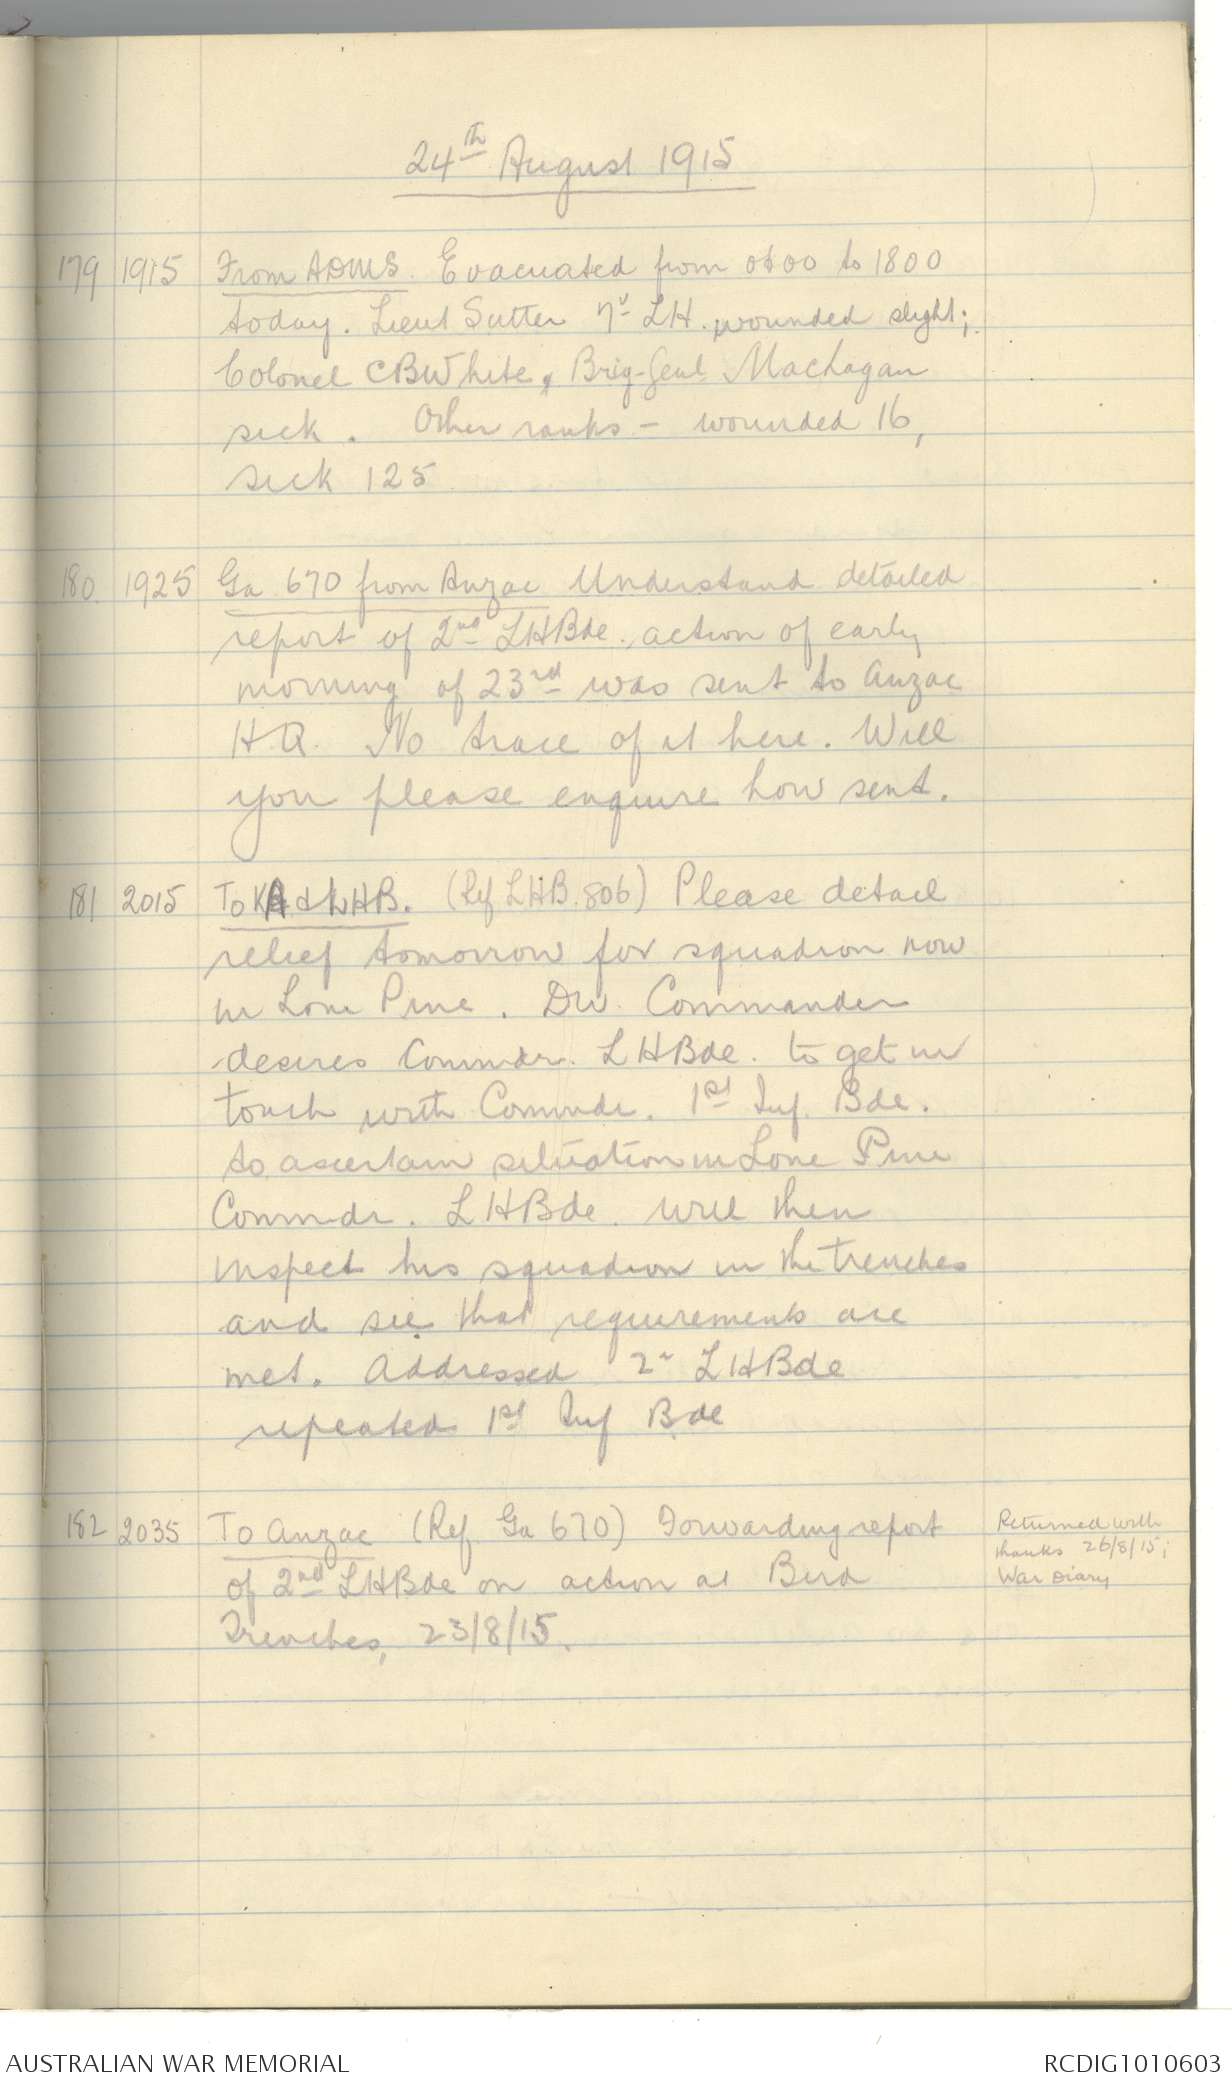 24th August 1915
179 1915 From ADMS. Evacuated from 0600 to 1800
today. Lieut Sutter 7th LH. wounded slight;
Colonel CBWhite, Brig-Genl Maclagan
sick. Other ranks - wounded 16,
sick 125
180. 1925 Ga 670 from Anzac Understand detailed
report of 2nd LHBde. action of early
morning of 23rd was sent to Anzac
H.Q. No trace of it here. Will
you please enquire how sent.
181 2015 To LHB. (Ref LHB.806) Please detail
relief tomorrow for squadron now
in Lone Pine. Div. Commander
desires Commdr. LHBde. to get in
touch with Commdr. 1st Inf. Bde.
to ascertain situation in Lone Pine
Commdr. LHBde. will then
inspect his squadron in the trenches
and see that requirements are
met. Addressed 2n LHBde
repeated 1st Inf Bde
182 2035 To Anzac (Ref Ga 670) Forwarding report
of 2nd LHBde on action at Bird
Trenches, 23/8/15.
Returned with
thanks 26/8/15;
War Diary
AUSTRALIAN WAR MEMORIAL
RCDIG1010603